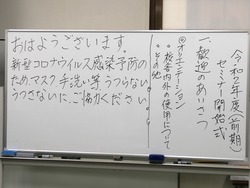 おはようございます。
新型コロナウイルス感染予防の
ためマスク手洗い等、うつらない
うつさないに、ご協力ください
令和2年度(前期)
セミナー開始式
一、歓迎のあいさつ
◎オリエンテーション
・校舎内外の使用について
・その他